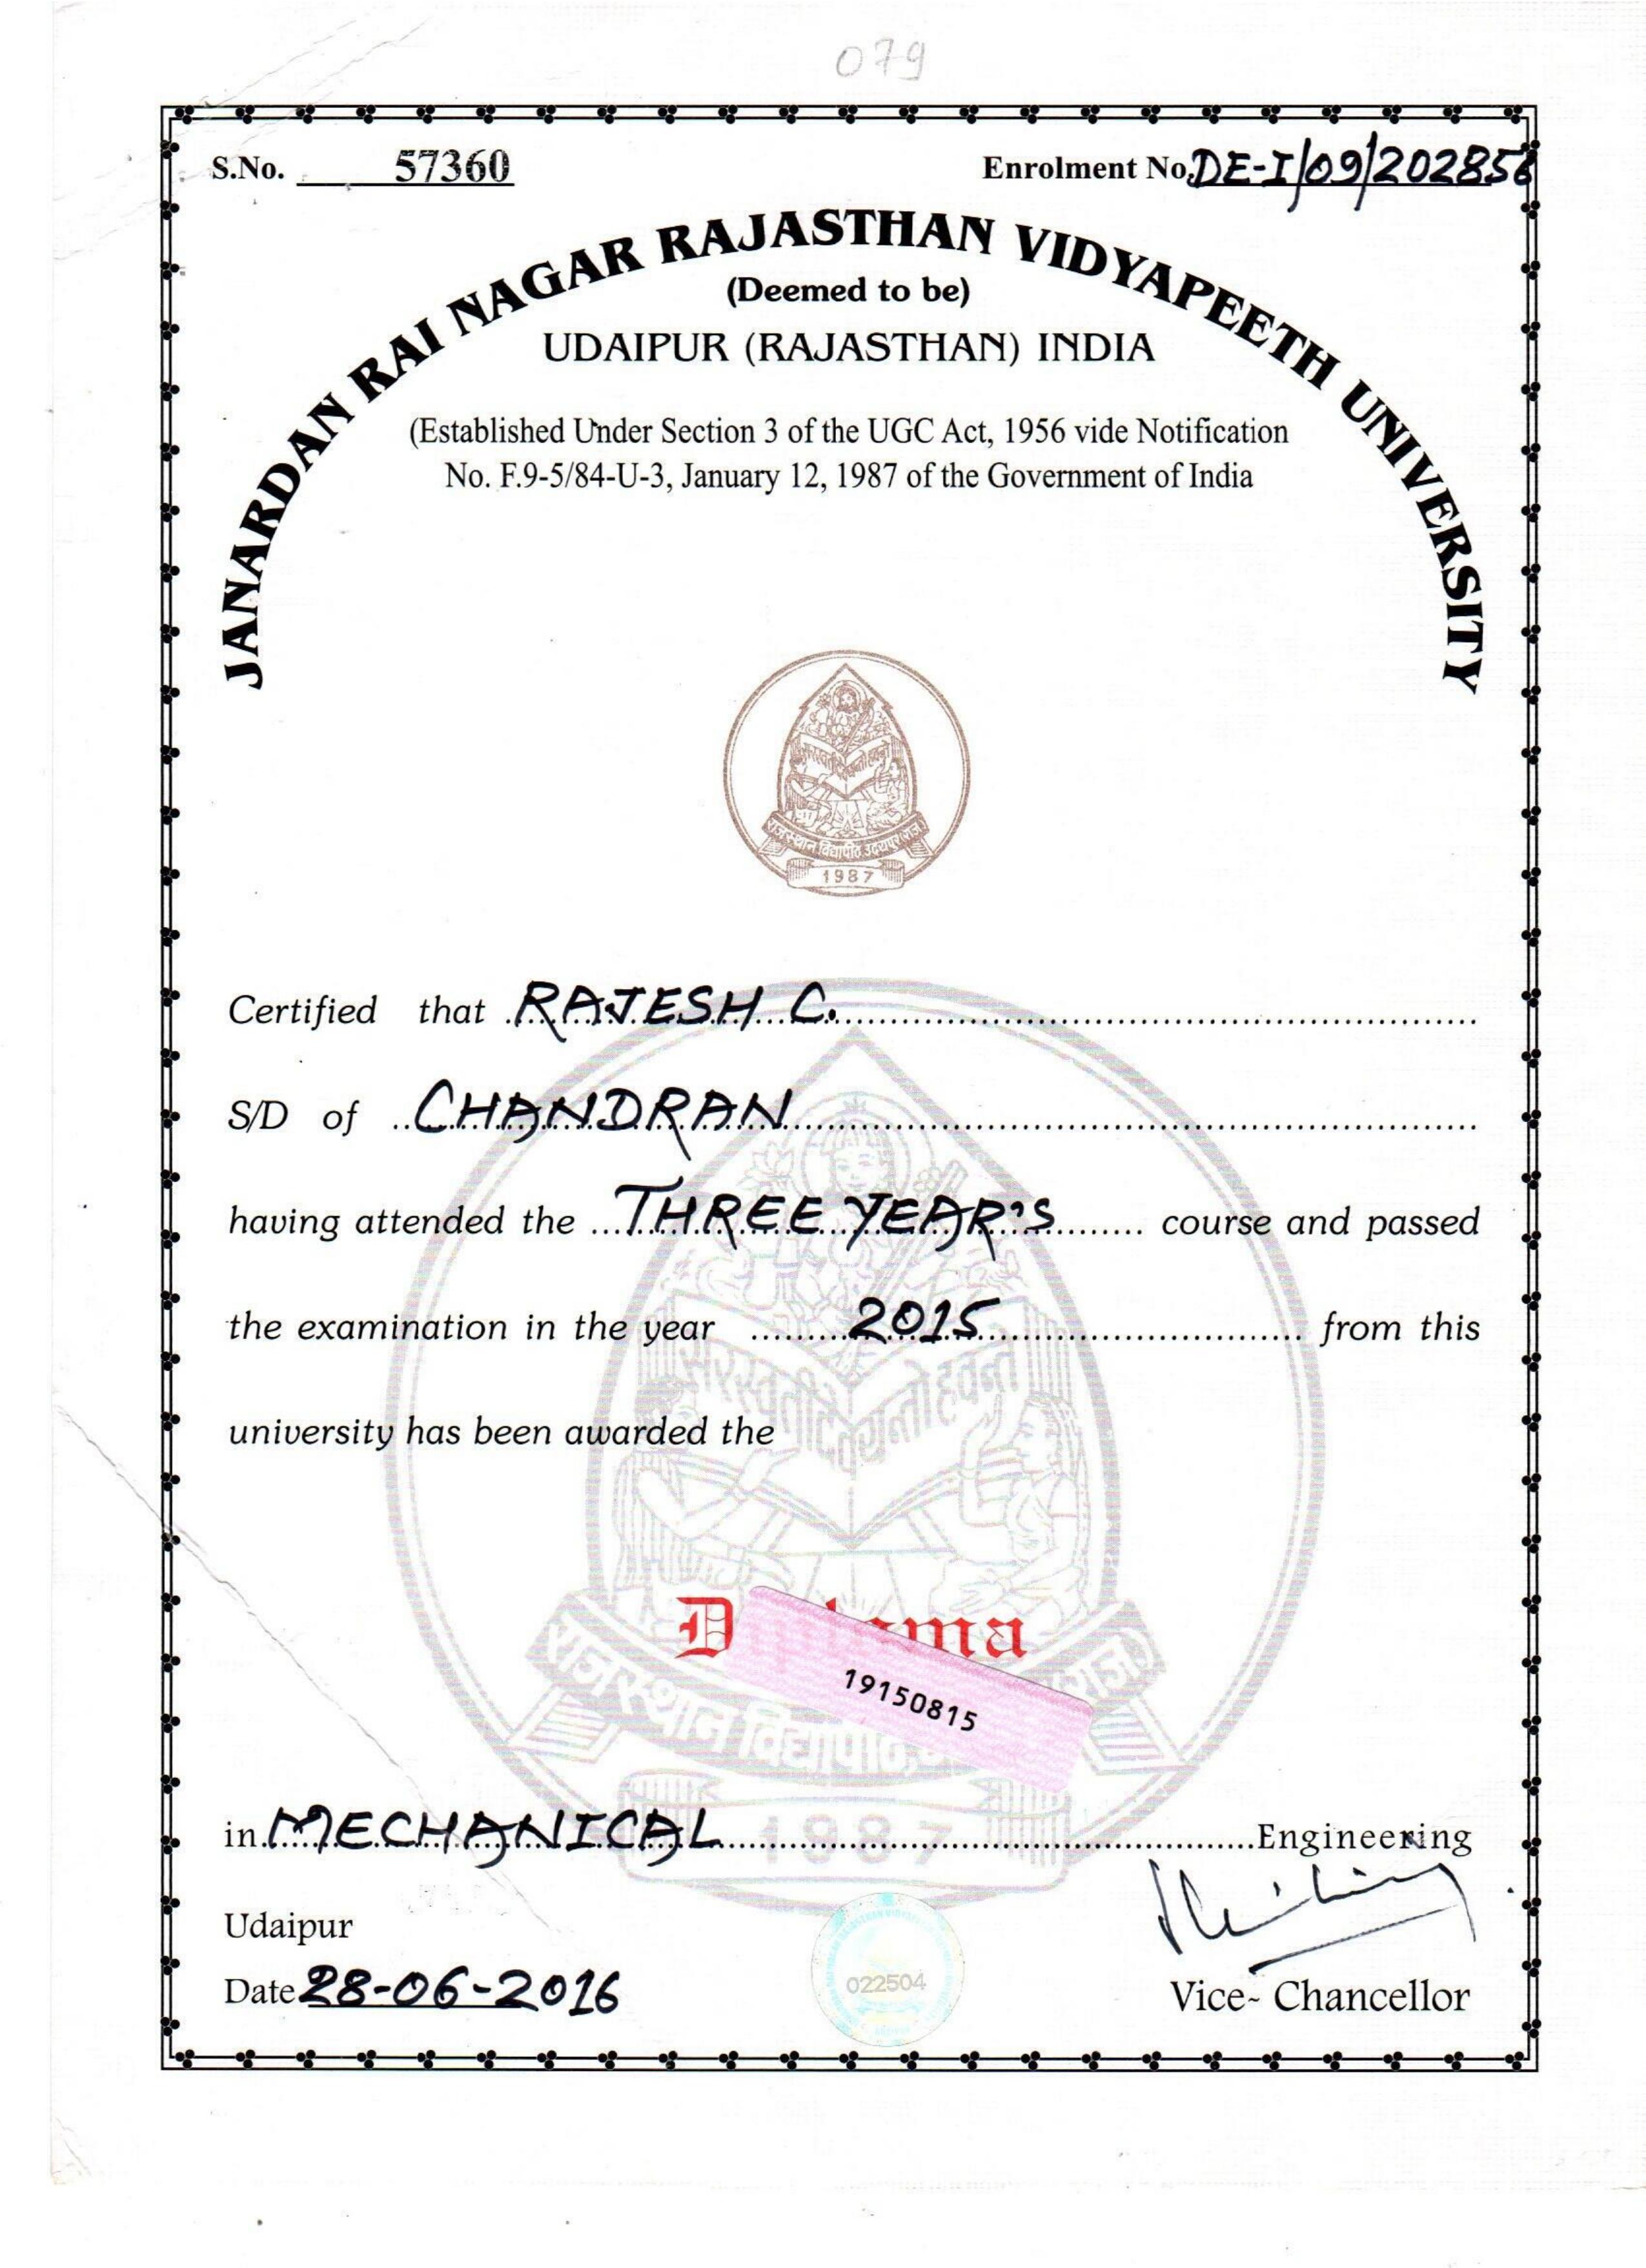 079
S.No. 57360
Enrolment No. DE-I/09/202856
JANARDAN RAI NAGAR RAJASTHAN VIDYAPEETH UNIVERSITY
(Deemed to be)
UDAIPUR (RAJASTHAN) INDIA
(Established Under Section 3 of the UGC Act, 1956 vide Notification
No. F.9-5/84-U-3, January 12, 1987 of the Government of India
1987
Certified that RAJESH C.
S/D of CHANDRAN
having attended the THREE YEAR'S course and passed
the examination in the year 2015 from this
university has been awarded the
Diploma
19150815
राजस्थान विद्यापीठ
1987
in MECHANICAL Engineering
Udaipur
Date 28-06-2016
022504
Vice- Chancellor